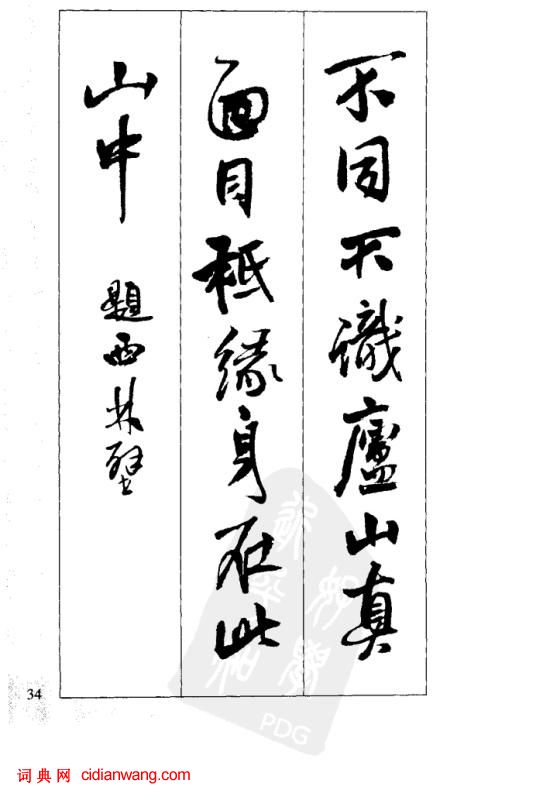 不同不識廬山真
面目秖緣身在此
山中 題西林壁
34
PDG
词典网 cidianwang.com